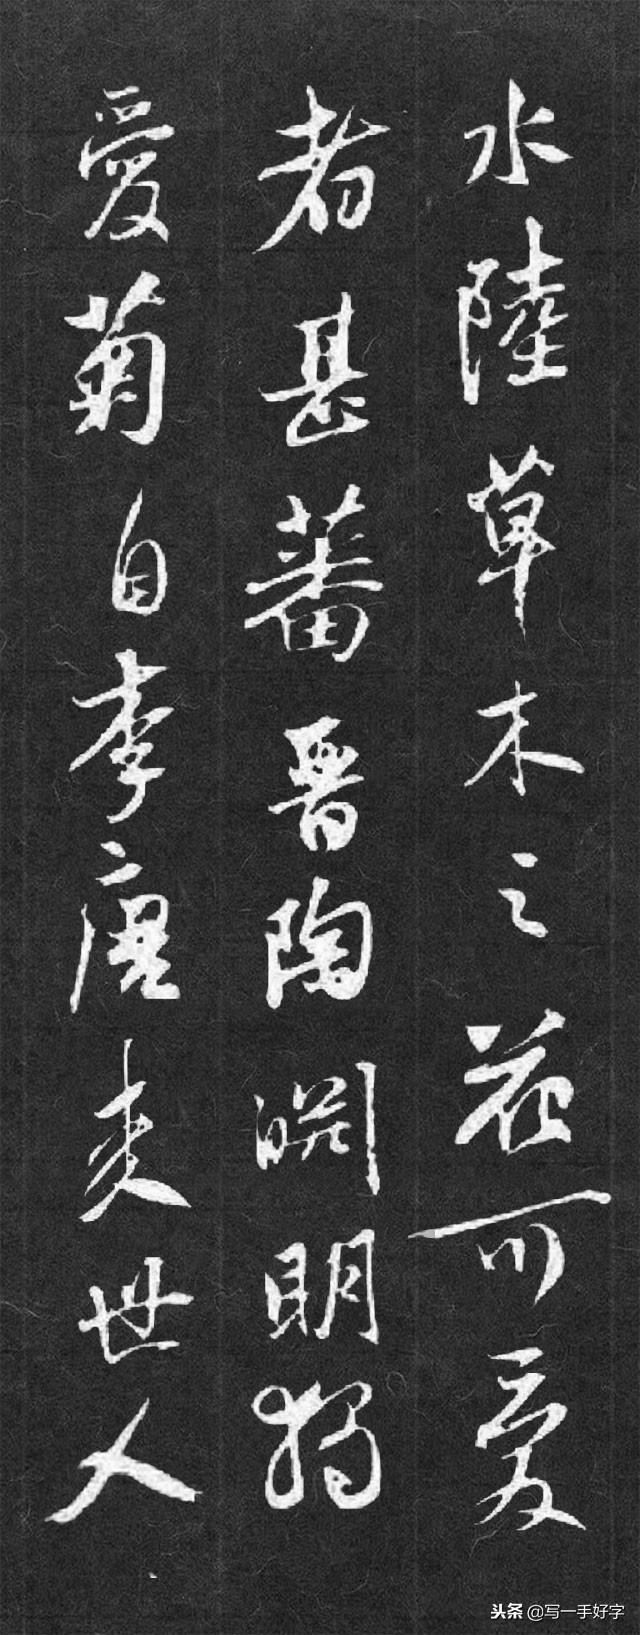 水陸草木之花可愛
者甚蕃晋陶渊明獨
愛菊自李唐来世人
头条 @写一手好字